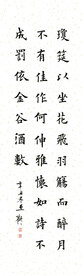 瓊筵以坐花飛羽觴而醉月
不有佳作何伸雅懷如詩不
成罰依金谷酒數